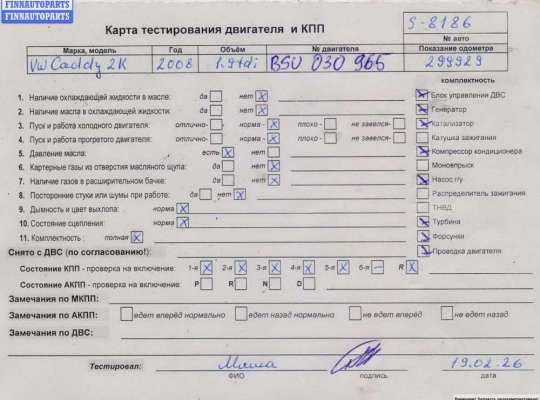 FINNAUTOPARTS
FINNAUTOPARTS
FINNAUTOPARTS
Карта тестирования двигателя и КПП
S-8186
№ авто
Марка, модель Год Объём № двигателя Показание одометра
VW Caddy 2K 2008 1.9tdi BSU 030 965 299929
комплектность
1. Наличие охлаждающей жидкости в масле: да нет X
Блок управления ДВС
2. Наличие масла в охлаждающей жидкости: да нет X
Генератор
3. Пуск и работа холодного двигателя: отлично- норма - X плохо - не завелся-
Катализатор
4. Пуск и работа прогретого двигателя: отлично- норма - X плохо - не завелся-
Катушка зажигания
5. Давление масла: есть X нет
Компрессор кондиционера
6. Картерные газы из отверстия масляного щупа: да нет X
Моновпрыск
7. Наличие газов в расширительном бачке: да нет X
Насос г/у
8. Посторонние стуки или шумы при работе: да нет X
Распределитель зажигания
9. Дымность и цвет выхлопа: норма X
ТНВД
10. Состояние сцепления: норма X
Турбина
11. Комплектность : полная X
Форсунки
Снято с ДВС (по согласованию!):
Проводка двигателя
Состояние КПП - проверка на включение: 1-я X 2-я X 3-я X 4-я X 5-я X 6-я – R X
Состояние АКПП - проверка на включение: P R N D
Замечания по МКПП:
Замечания по АКПП: едет вперёд нормально едет назад нормально не едет вперёд не едет назад
Замечания по ДВС:
Тестировал: Миша 19.02.26
ФИО подпись дата